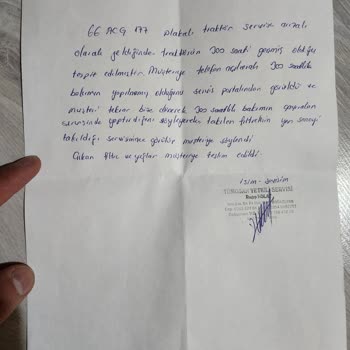 66 ACG 177 plakalı traktör servise arızalı
olarak geldiğinde traktörün 300 saati geçmiş olduğu
tespit edilmiştir. Müşteriye telefon açılarak 300 saatlik
bakımın yapılmamış olduğunu servis portalından görüldü ve
müşteri tekrar bize dönerek 300 saatlik bakımın
servisinde yaptırdığını söyleyerek takılan filtrelerin yan sanayi
takıldığı servisimizce görülüp müşteriye söylendi
Çıkan filtre ve yağlar müşteriye teslim edildi.
İsim - Soyisim
TÜMOSAN YETKİLİ SERVİSİ